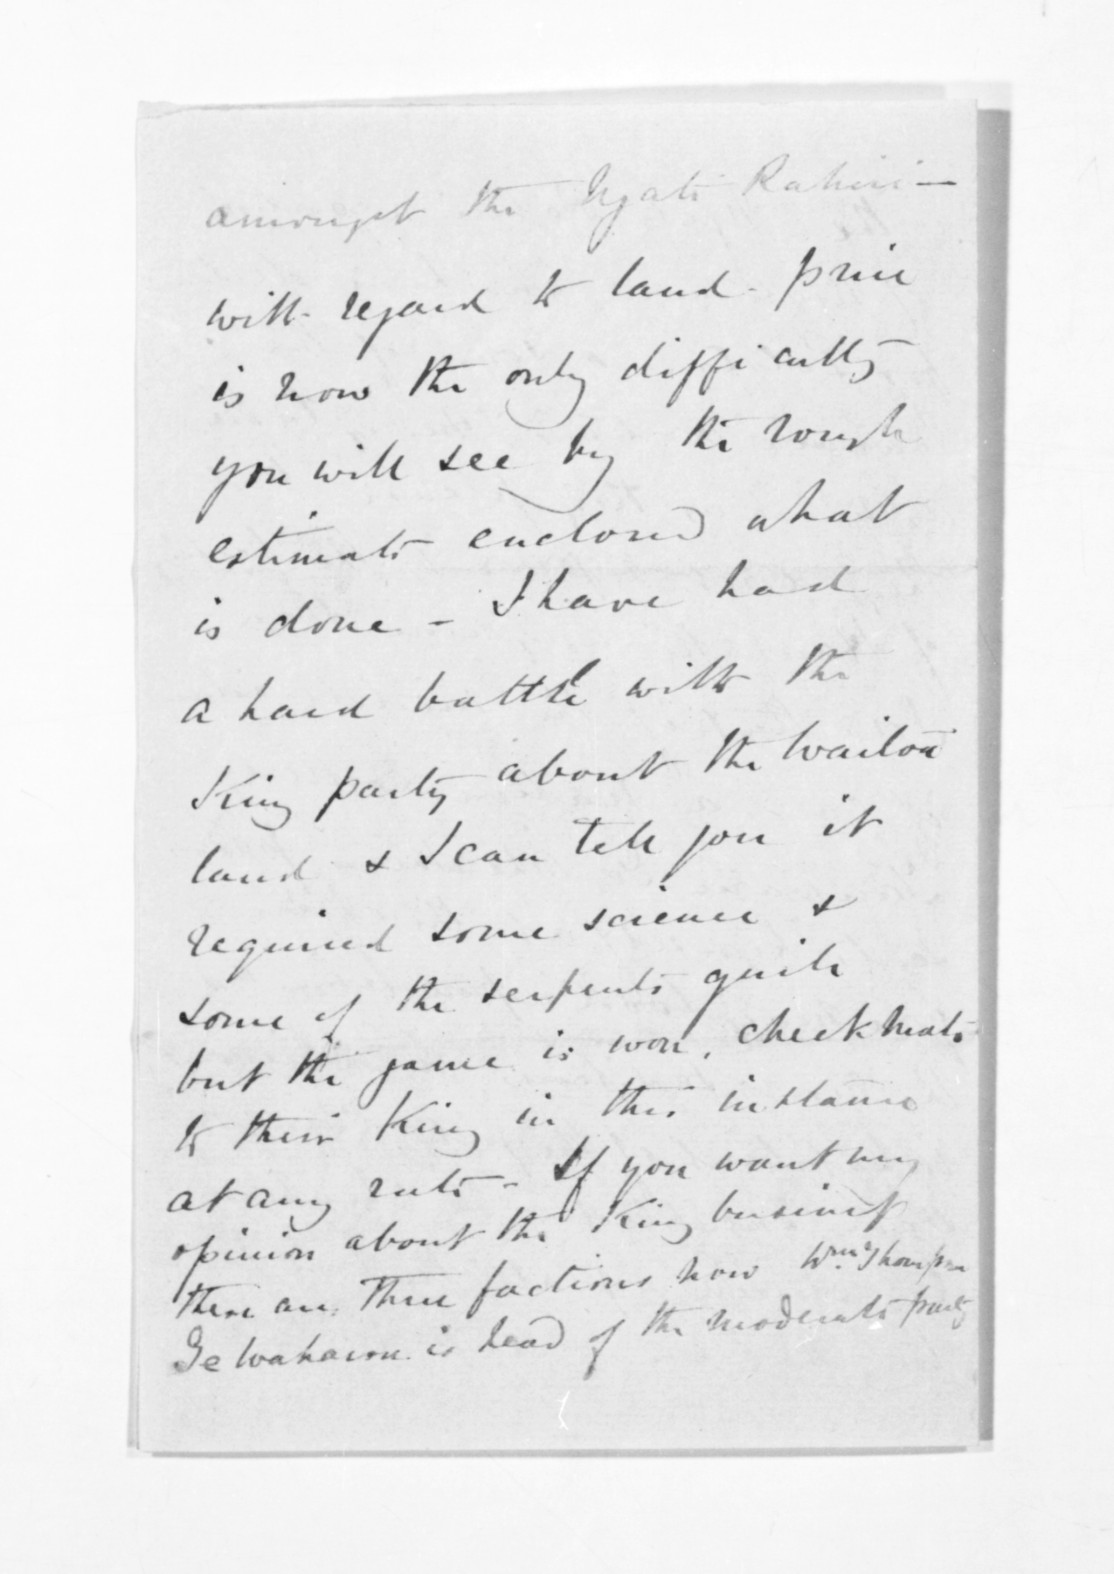 amongst the Ngati Rahiri —
with regard to land - price
is now the only difficulty
you will see by the rough
estimate enclosed what
is done - I have had
a hard battle with the
King party about the Waitoa
land & I can tell you it
required some science &
some of the serpents guile
but the game is won, checkmate
to their King in this instance
at any rate - If you want my
opinion about the King business
there are three factions now Wm Thompson
Te Waharoa is head of the moderate party